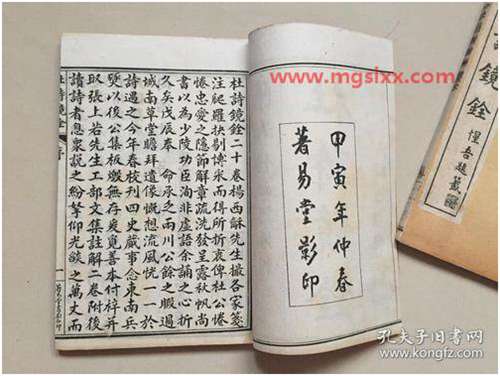 www.mgslxx.com
甲寅年仲春
著易堂影印
杜詩鏡銓二十卷楊西龢先生撮各家箋
注爬羅抉剔博采而得所折衷俾杜公惓
惓忠愛之隱節解章疏洗發呈露秋帆尚
書以為少陵功臣洵非虛語余誦之心折
久矣戊辰春 命承乏兩川公餘之暇過
城南草堂瞻拜遺像慨想流風恍一一於
詩遇之今年春校刊四史蕆事念東南兵
燹以後公集板燬無存爰覓善本付梓并
取張上若先生工部文集註解二卷附後
讀詩者息衆說之紛拏仰光燄之萬丈而
杜詩鏡銓 序 一
詩鏡銓
惺吾題
孔夫子旧书网
www.kongfz.com